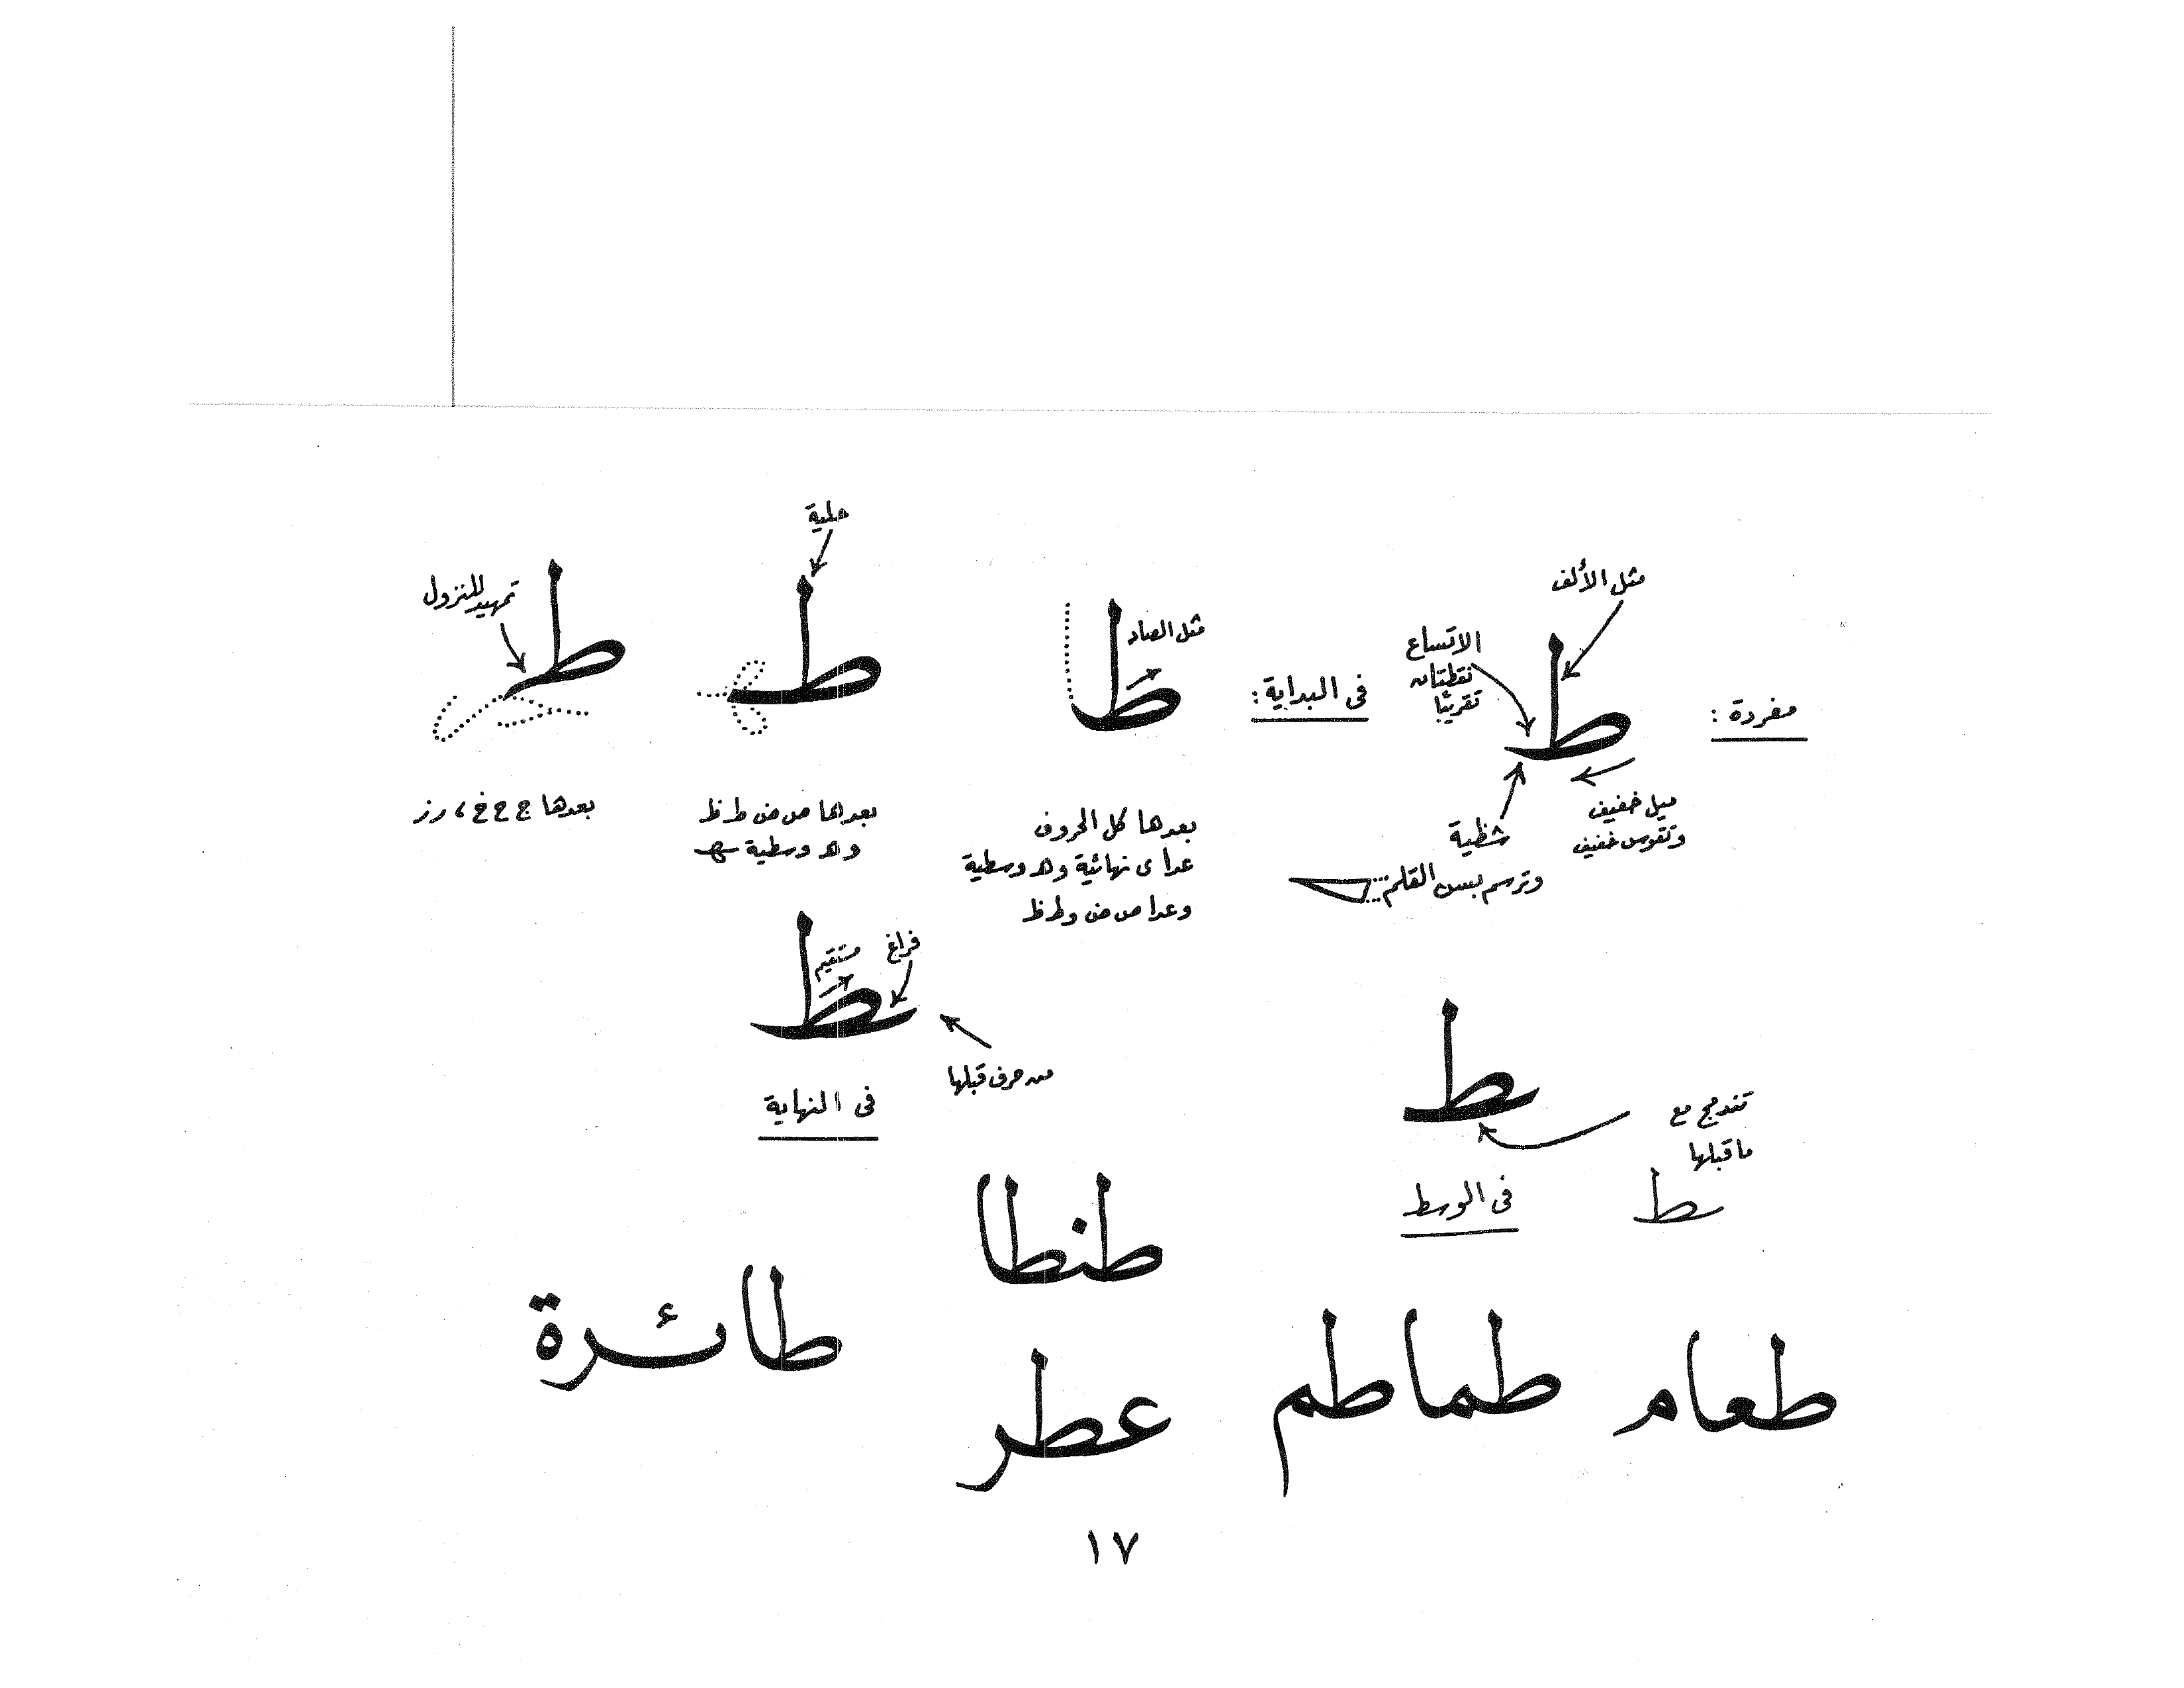 مفردة :
ط
مثل الألف
الاتساع
نقطتان
تقريبًا
ميل خفيف
وتقوس خفيف
شظية
وترسم بسن القلم...
فى البداية :
ط
مثل الصاد
بعدها كل الحروف
عدا ى نهائية وهـ وسطية
وعدا ص ض وط ظ
ط
حلية
بعدها ص ض ط ظ
وهـ وسطية ـهـ
ط
تمهيد للنزول
بعدها ج ح خ ، ر ز
ـطـ
تندمج مع
ما قبلها
ـط
فى الوسط
ـط
فراغ
مستقيم
من حرف قبلها
فى النهاية
طنطا
طعام طماطم عطر طائرة
١٧